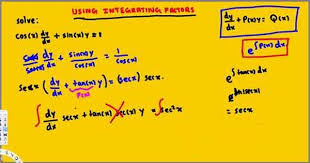 USING INTEGRATING FACTORS
solve:
cos(x) dy/dx + sin(x) y = 1
cos(x)/cos(x) dy/dx + sin(x)y/cos(x) = 1/cos(x)
sec x (dy/dx + tan(x) y) = (sec x) sec x.
P(x)
∫ dy/dx sec x + tan(x) sec(x) y = ∫ sec²x
dy/dx + P(x)y = Q(x)
e^∫P(x) dx
e^∫tan(x) dx
e^ln|sec(x)|
= sec x